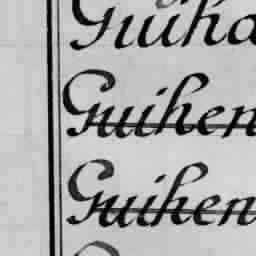 Guiha
Guihen
Guihen